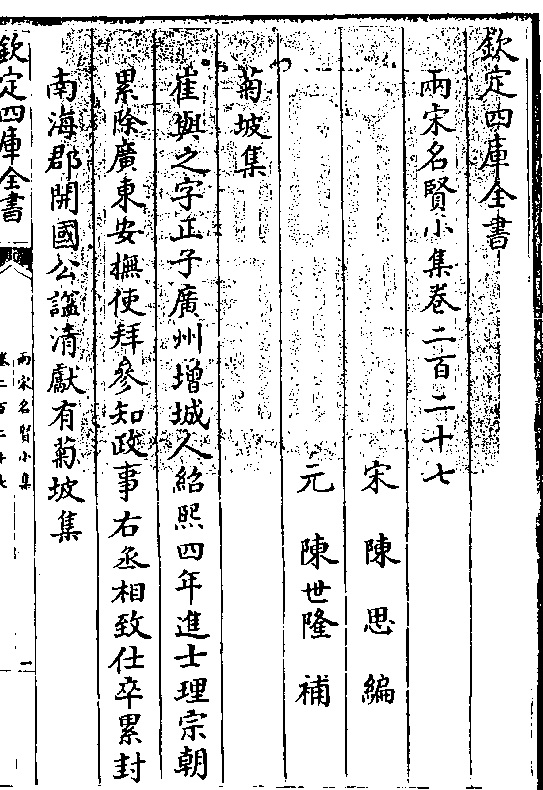 欽定四庫全書
兩宋名賢小集卷二百二十七
宋 陳思 編
元 陳世隆 補
菊坡集
崔與之字正子廣州增城人紹熙四年進士理宗朝
累除廣東安撫使拜參知政事右丞相致仕卒累封
南海郡開國公諡清獻有菊坡集
欽定四庫全書
兩宋名賢小集
卷二百二十七
一